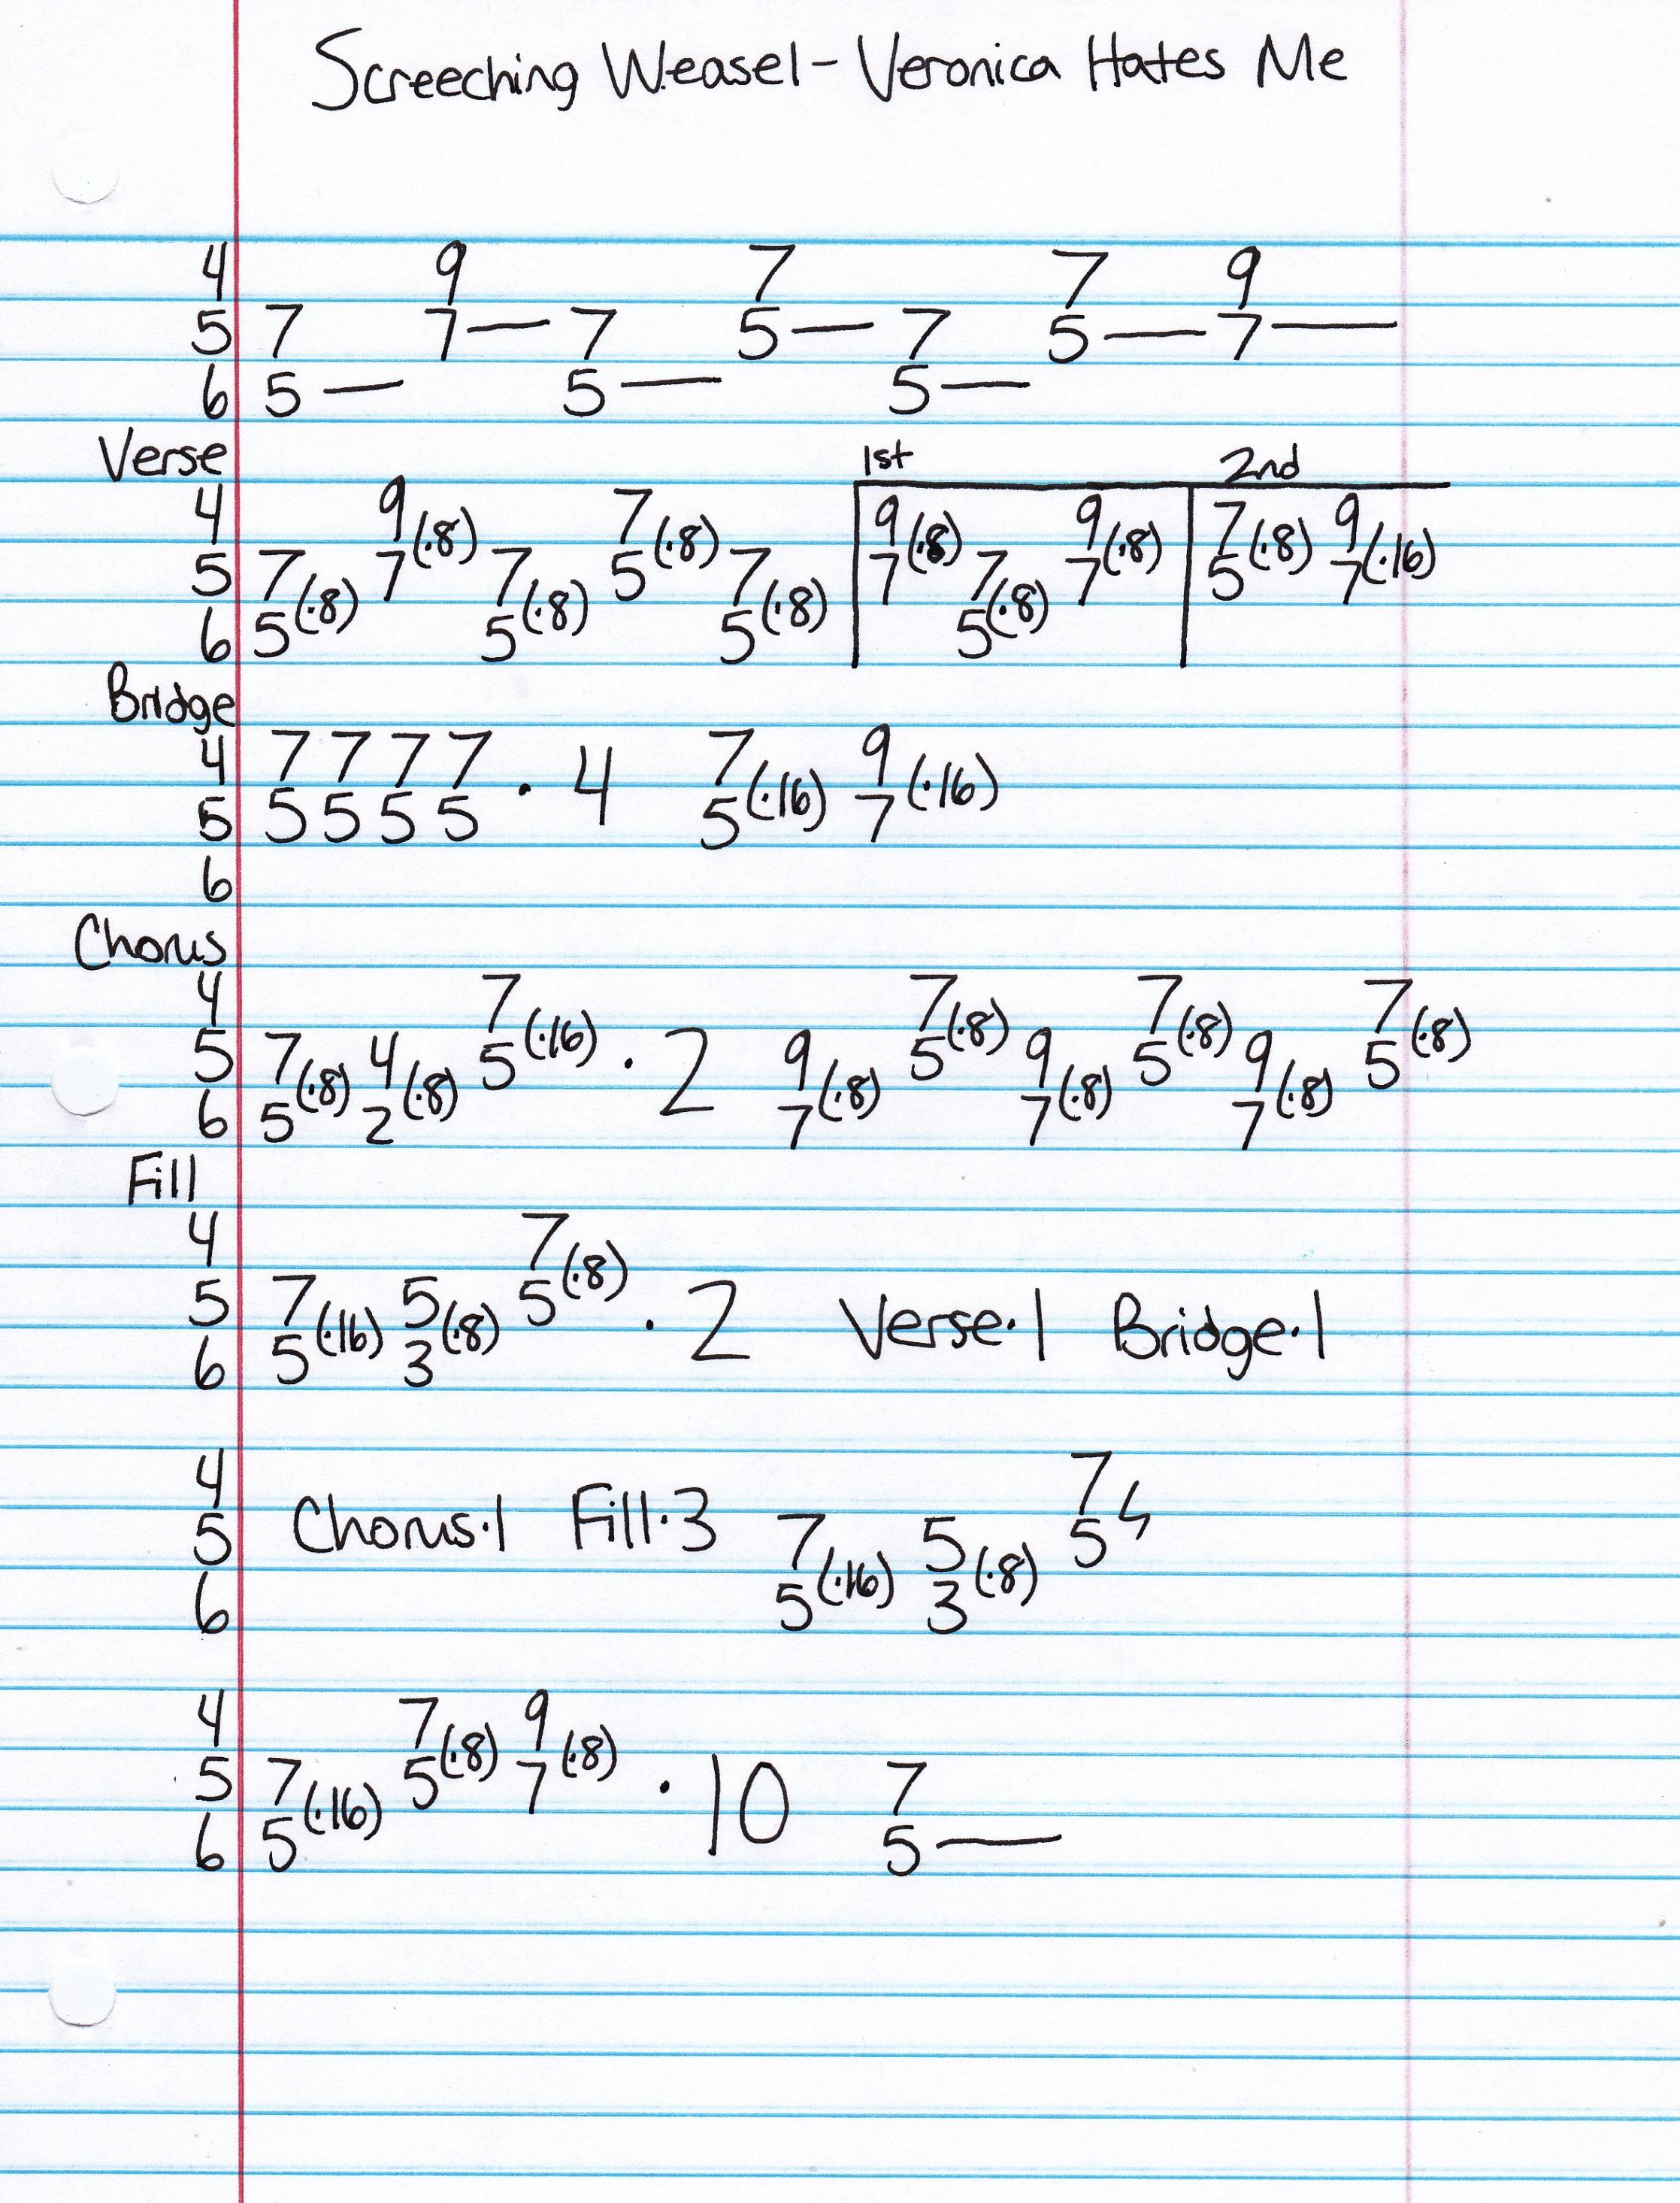 Screeching Weasel - Veronica Hates Me
4 9 7 7 9
5 7 7— 7 5— 7 5— 7—
6 5— 5— 5—
Verse 1st 2nd
4 9(·8) 7(·8) 9(·8) 9(·8) 7(·8) 9(·16)
5 7(·8) 7 7(·8) 5 7(·8) 7 7(·8) 7 5 7
6 5 5 5 5
Bridge
4 7 7 7 7 · 4 7(·16) 9(·16)
5 5 5 5 5 5 7
6
Chorus
4 7(·16) 7(·8) 7(·8) 7(·8)
5 7(·8) 4(·8) 5 · 2 9(·8) 5 9(·8) 5 9(·8) 5
6 5 2 7 7 7
Fill
4 7(·8)
5 7(·16) 5(·8) 5 · 2 Verse·1 Bridge·1
6 5 3
4 7
5 Chorus·1 Fill·3 7(·16) 5(·8) 5
6 5 3
4 7(·8) 9(·8)
5 7(·16) 5 7 · 10 7
6 5 5—